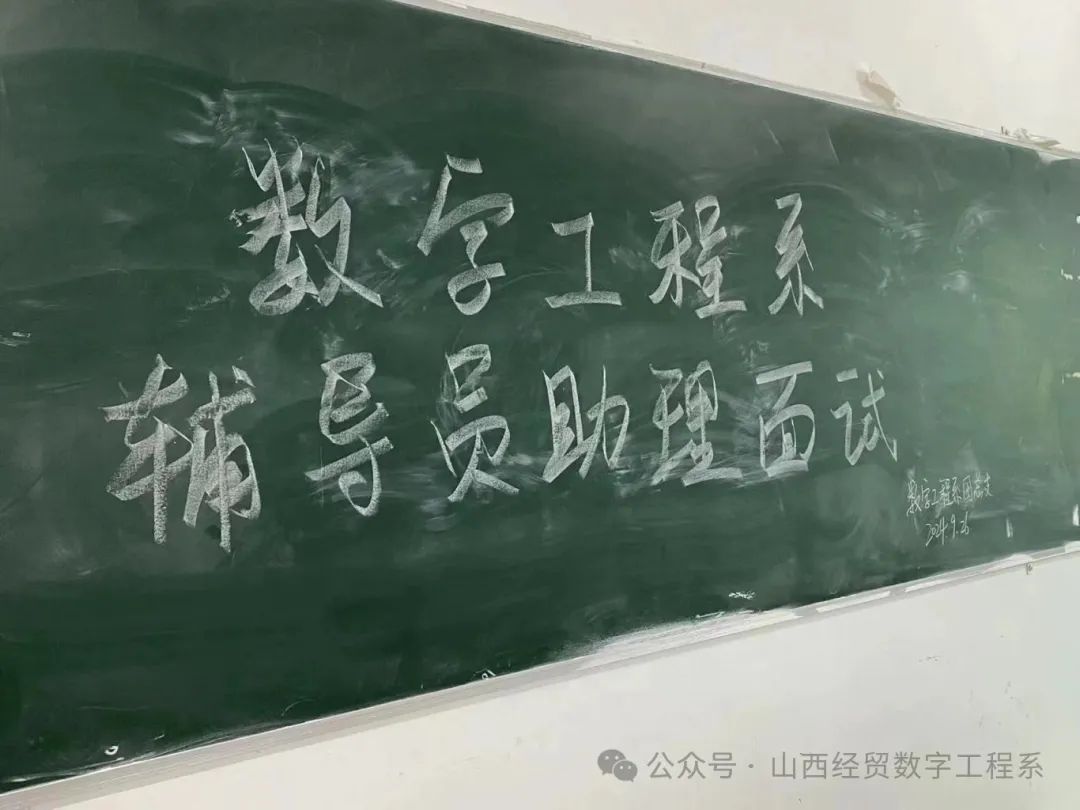 数字工程系
辅导员助理面试
数字工程系团总支
2024.9.26
公众号·山西经贸数字工程系